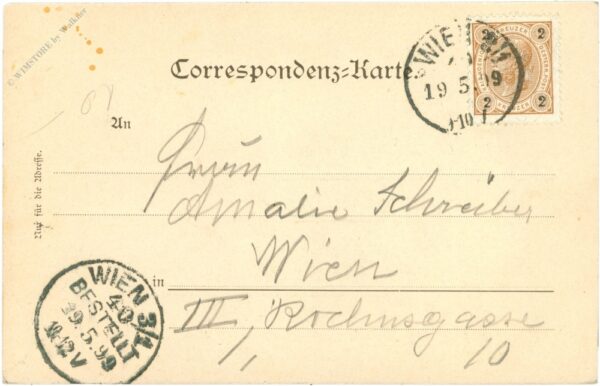 © WIMSTORE by Walküter
WIEN 3/1
19 5 99
KREUZER
2 2
2 2
Correspondenz=Karte.
An
Nur für die Adresse.
Frau
Amalie Schreiber
in Wien
III, Rochusgasse
10
WIEN 3/1
40
BESTELLT
19.5.99